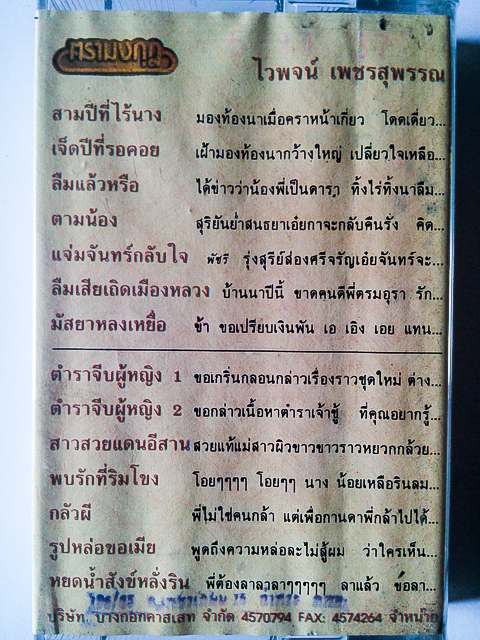 ตรามงกุฎ
ไวพจน์ เพชรสุพรรณ
สามปีที่ไร้นาง มองท้องนาเมื่อคราหน้าเกี่ยว โดดเดี่ยว...
เจ็ดปีที่รอคอย เฝ้ามองท้องนากว้างใหญ่ เปลี่ยวใจเหลือ...
ลืมแล้วหรือ ได้ข่าวว่าน้องพี่เป็นดารา ทิ้งไร่ทิ้งนาลืม...
ตามน้อง สุริยันย่ำสนธยาเอ๋ยกาจะกลับคืนรัง คิด...
แจ่มจันทร์กลับใจ พัชรี รุ่งสุรีย์ส่องศรีจรัญเอ๋ยจันทร์จะ...
ลืมเสียเถิดเมืองหลวง บ้านนาปีนี้ ขาดคนดีพี่ตรมอุรา รัก...
มัสยาหลงเหยื่อ ข้า ขอเปรียบเงินพัน เอ เอิง เอย แทน...
ตำราจีบผู้หญิง 1 ขอเกริ่นกลอนกล่าวเรื่องราวชุดใหม่ ต่าง...
ตำราจีบผู้หญิง 2 ขอกล่าวเนื้อหาตำราเจ้าชู้ ที่คุณอยากรู้...
สาวสวยแดนอีสาน สวยแท้แม่สาวผิวขาวขาวราวหยวกกล้วย...
พบรักที่ริมโขง โอยๆๆๆๆ โอยๆๆ นาง น้อยเหลือรินลม...
กลัวผี พี่ไม่ใช่คนกล้า แต่เพื่อกานดาพี่กล้าไปได้...
รูปหล่อขอเมีย พูดถึงความหล่อละไม่สู้ผม ว่าใครเห็น...
หยดน้ำสังข์หลั่งริน พี่ต้องลาลาลาๆๆๆๆๆ ลาแล้ว ขอลา...
บริษัท. บางกอกคาสเสท จำกัด 4570794 FAX: 4574264 จำหน่าย